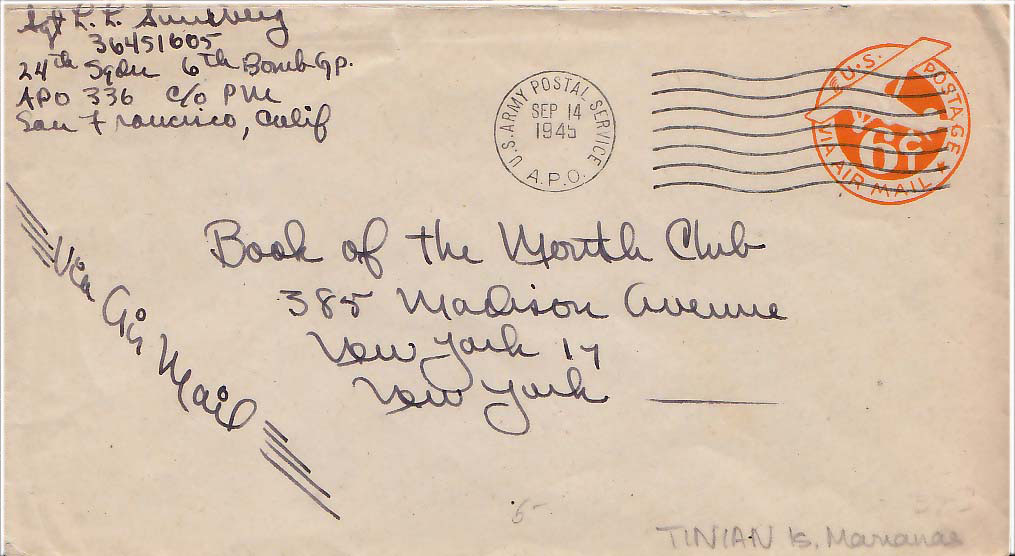 Sgt L. L.
36451605
24th Sqdn 6th Bomb Gp.
APO 336 c/o PM
San Francisco, Calif
U.S. ARMY POSTAL SERVICE
SEP 14
1945
A.P.O.
U.S. POSTAGE
6¢
VIA AIR MAIL
Via Air Mail
Book of the Month Club
385 Madison Avenue
New York 17
New York
5-
TINIAN Is. Marianas